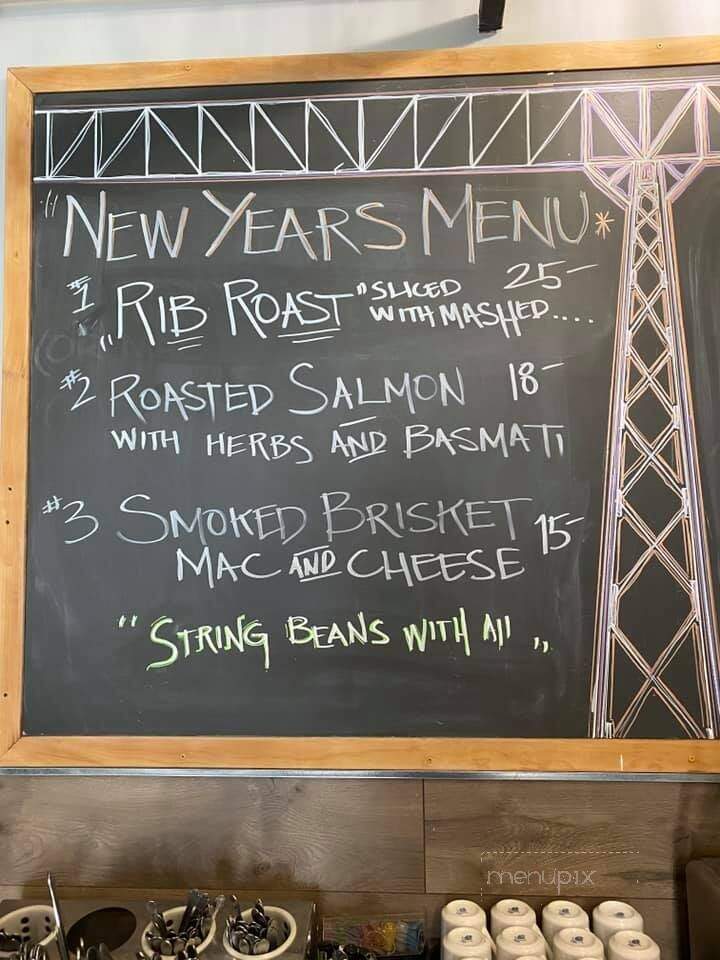 "NEW YEARS MENU" *
#1 "RIB ROAST" SLICED 25-
WITH MASHED....
#2 ROASTED SALMON 18-
WITH HERBS AND BASMATI
#3 SMOKED BRISKET 15-
MAC AND CHEESE
"STRING BEANS WITH All"
menupix